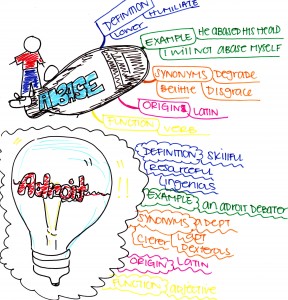 DEFINITION HUMILIATE
Lower
EXAMPLE He ABASED HIS HEAD
I will NOT ABASE MYSELF
ABASE
SYNONYMS Degrade
Belittle Disgrace
ORIGIN LATIN
FUNCTION VERB
DEFINITION Skillful
Resourceful
ingenias
Adroit
EXAMPLE an adroit debater
SYNONYMS ADEPT
Clever APT
Dexterous
ORIGIN LATIN
FUNCTION adjective